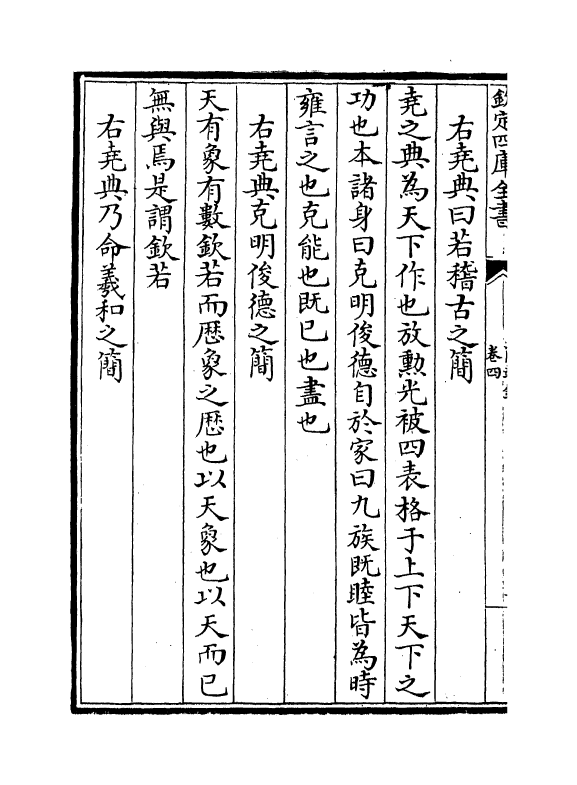 欽定四庫全書
卷四
右堯典曰若稽古之簡
堯之典為天下作也放勲光被四表格于上下天下之
功也本諸身曰克明俊德自於家曰九族既睦皆為時
雍言之也克能也既已也盡也
右堯典克明俊德之簡
天有象有數欽若而厯象之厯也以天象也以天而已
無與焉是謂欽若
右堯典乃命羲和之簡